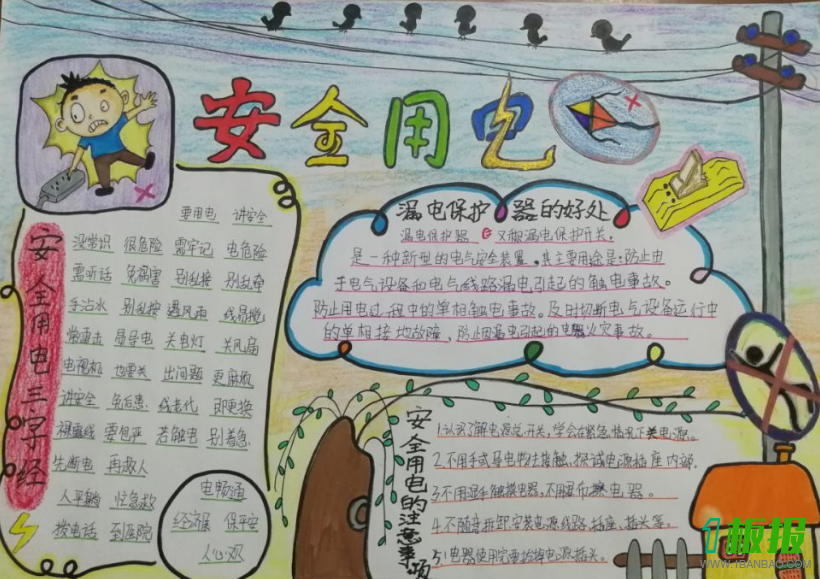 安全用电
安全用电三字经
要用电 讲安全
没常识 很危险 需牢记 电危险
需听话 免祸害 别乱接 别乱牵
手沾水 别乱按 遇风雨 线易搅
常重击 易导电 关电灯 关风扇
电视机 也要关 出问题 更麻烦
讲安全 免后患 线老化 即更换
裸露线 要包严 若触电 别着急
先断电 再救人
人平躺 忙急救
拨电话 到医院
电畅通
经济展 保平安
人心欢
漏电保护器的好处
漏电保护器 又称漏电保护开关,
是一种新型的电气安全装置,其主要用途是:防止由
于电气设备和电气线路漏电引起的触电事故。
防止用电过程中的单相触电事故。及时切断电气设备运行中
的单相接地故障,防止因漏电引起的电器火灾事故。
安全用电的注意事项
1.认识了解电源总开关,学会在紧急情况下关电源。
2.不用手或导电物去接触,探试电源插座内部。
3.不用湿手触摸电器,不用湿布擦电器。
4.不随意拆卸安装电源线路,插座、插头等。
5.电器使用完要拔掉电源插头。
1板报
WWW.1BANBAO.COM